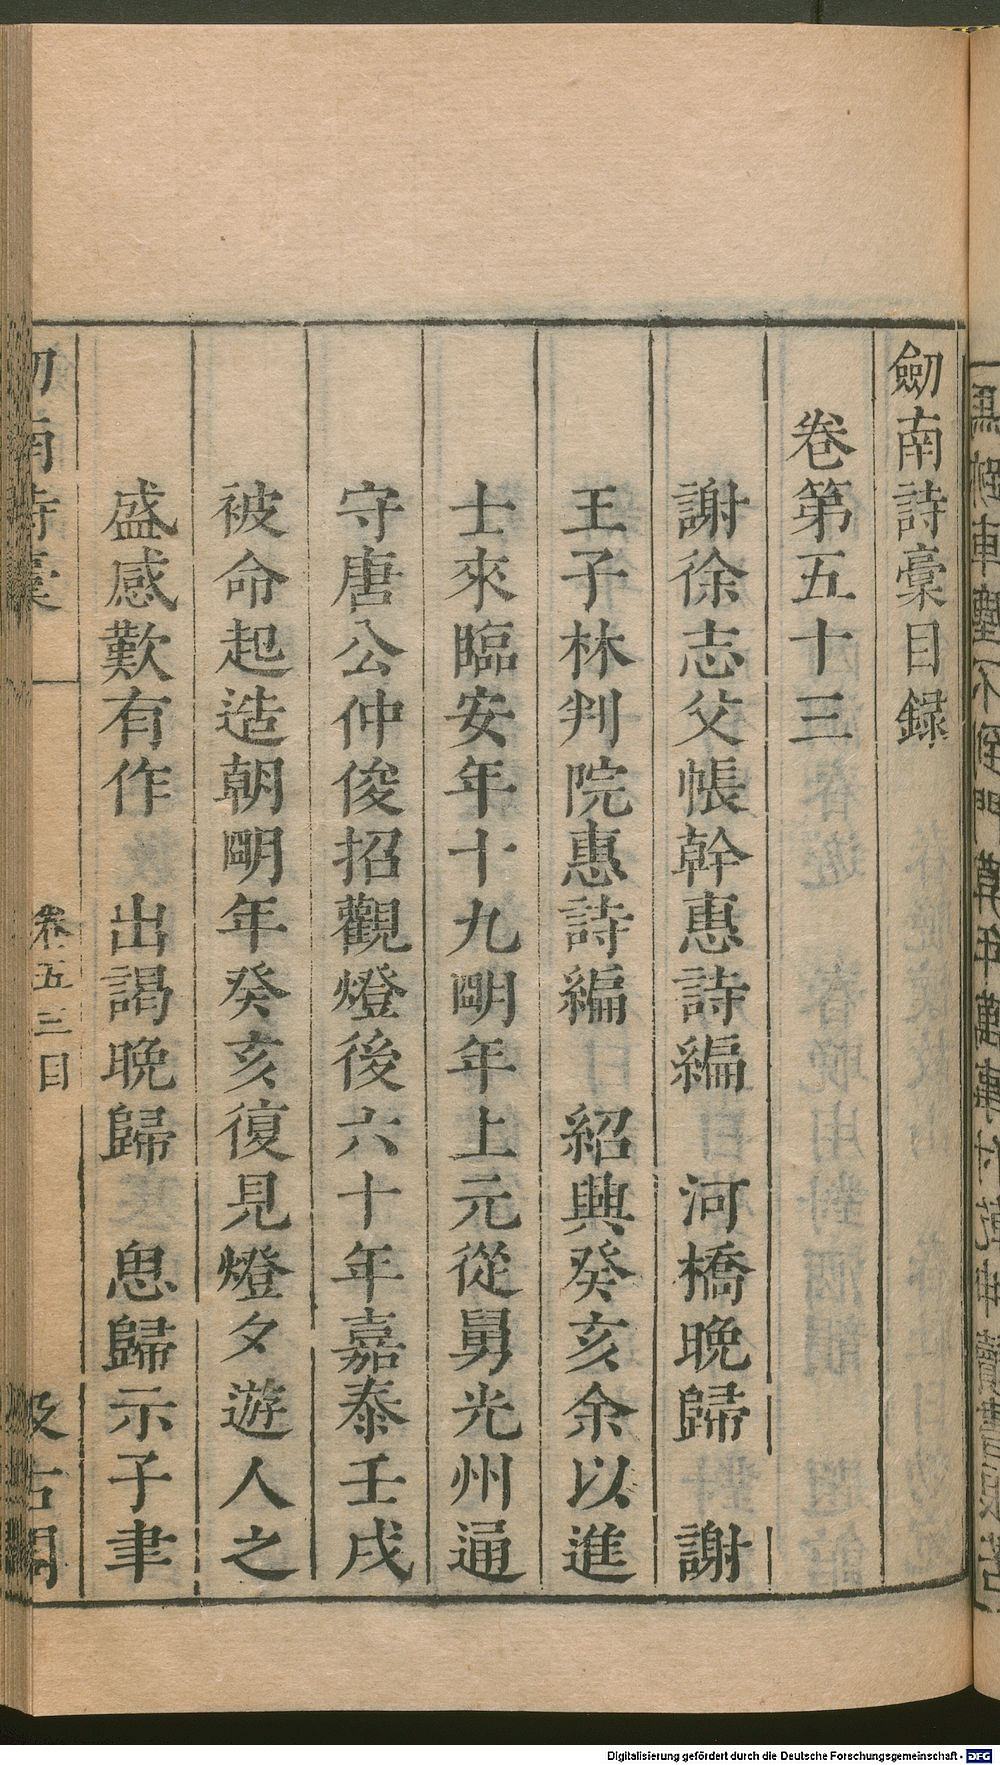 劒南詩稾目録
卷第五十三
謝徐志父帳幹惠詩編　河橋晚歸　謝
王子林判院惠詩編　紹興癸亥余以進
士來臨安年十九明年上元從舅光州通
守唐公仲俊招觀燈後六十年嘉泰壬戌
被命起造朝明年癸亥復見燈夕遊人之
盛感歎有作　出謁晚歸　思歸示子聿
南詩稾　卷五三目　汲古閣
Digitalisierung gefördert durch die Deutsche Forschungsgemeinschaft - DFG